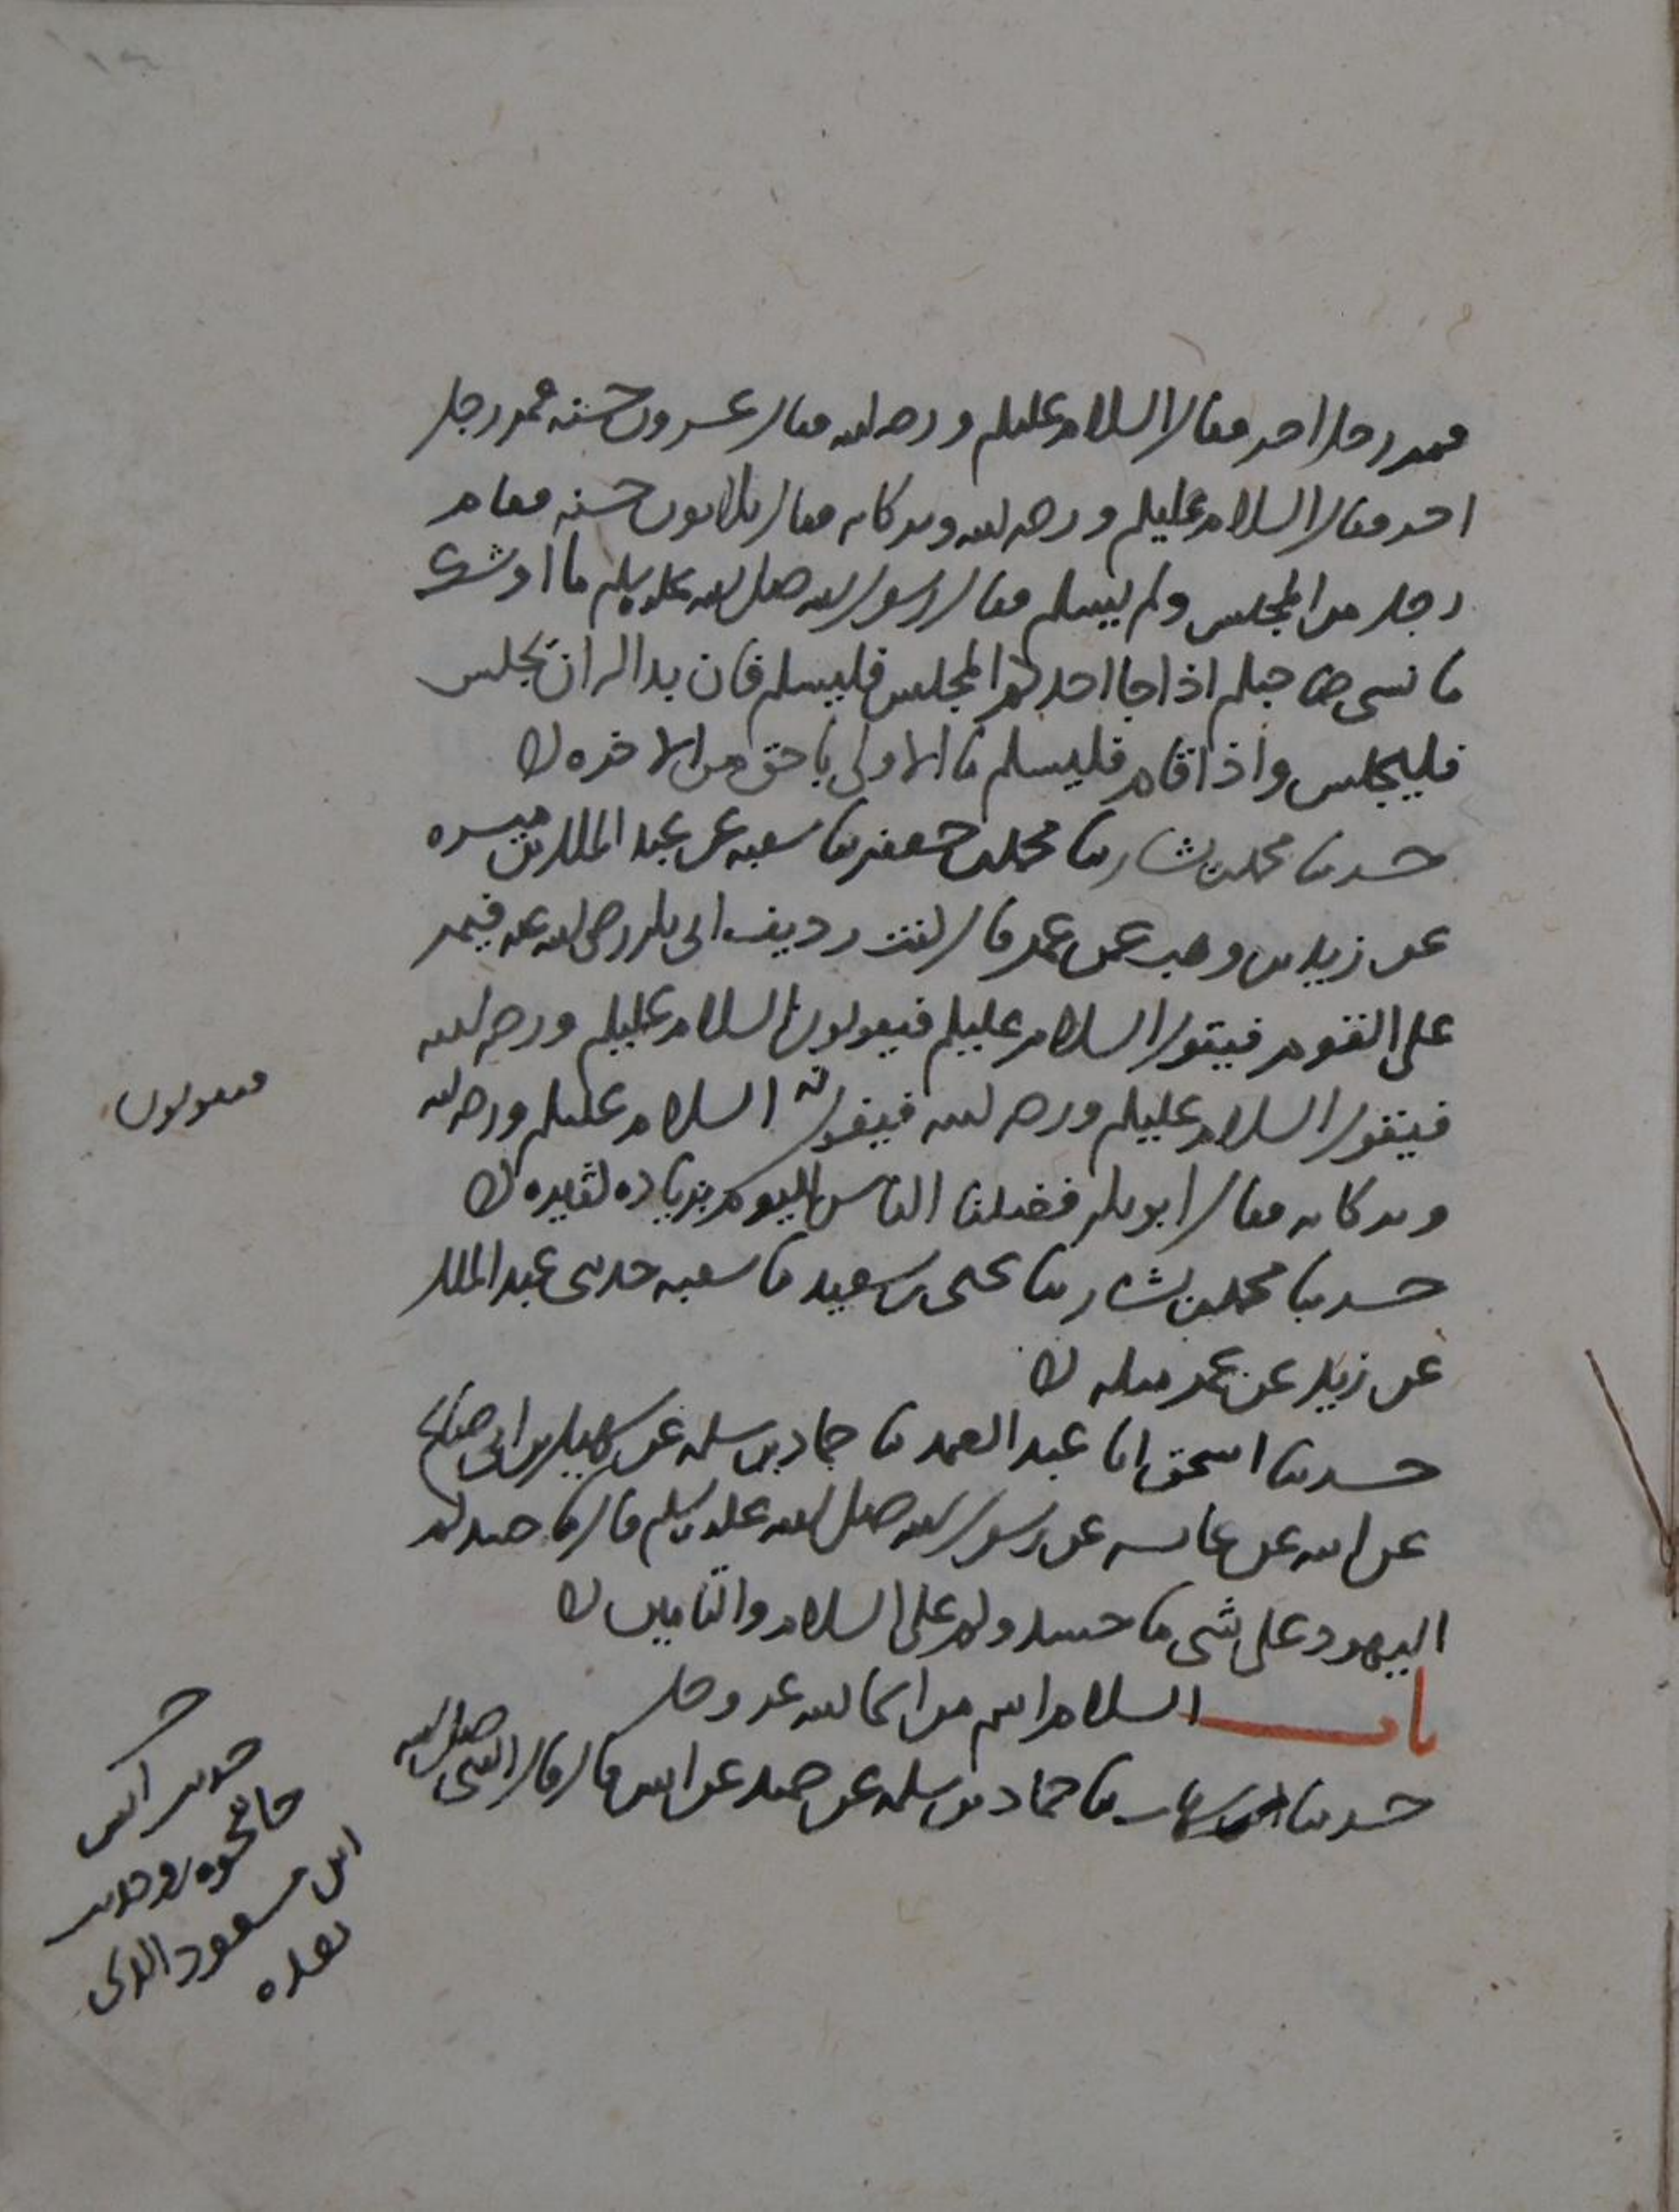 فمر رجل اخر فقال السلام عليكم ورحمه الله فقال عشرون حسنه فمر رجل
اخر فقال السلام عليكم ورحمه الله وبركاته فقال ثلاثون حسنه فقام
رجل من المجلس ولم يسلم فقال رسول الله صلى الله عليه وسلم ما اوشك
ما نسي صاحبكم اذا جا احدكم المجلس فليسلم فان بدا له ان يجلس
فليجلس واذا قام فليسلم ما الاولى باحق من الاخره
حدثنا محمد بن بشار ثنا محمد بن جعفر ثنا شعبه عن عبد الملك بن ميسره
عن زيد بن وهب عن عمر قال كنت رديف ابى بكر رضى الله عنه فيمر
على القوم فيقول السلام عليكم فيقولون السلام عليكم ورحمه الله
فيقول السلام عليكم ورحمه الله فيقول السلام عليكم ورحمه الله
فيقولون
وبركاته فقال ابو بكر فضلنا الناس اليوم بزياده كثيره
حدثنا محمد بن بشار ثنا يحيى بن سعيد ثنا شعبه حدثنى عبد الملك
عن زيد عن عمر مثله
حدثنا اسحق انا عبد الصمد ثنا حماد بن سلمه عن سهيل بن ابى صالح
عن ابيه عن عائشه عن رسول الله صلى الله عليه وسلم قال ما حسدكم
اليهود على شى ما حسدوكم على السلام والتامين
باب السلام اسم من اسما الله عز وجل
حدثنا شهاب ثنا حماد بن سلمه عن حميد عن انس قال قال النبى صلى الله
ح
حديث انس
حا نحوه وحديث
ابن مسعود الذى
بعده